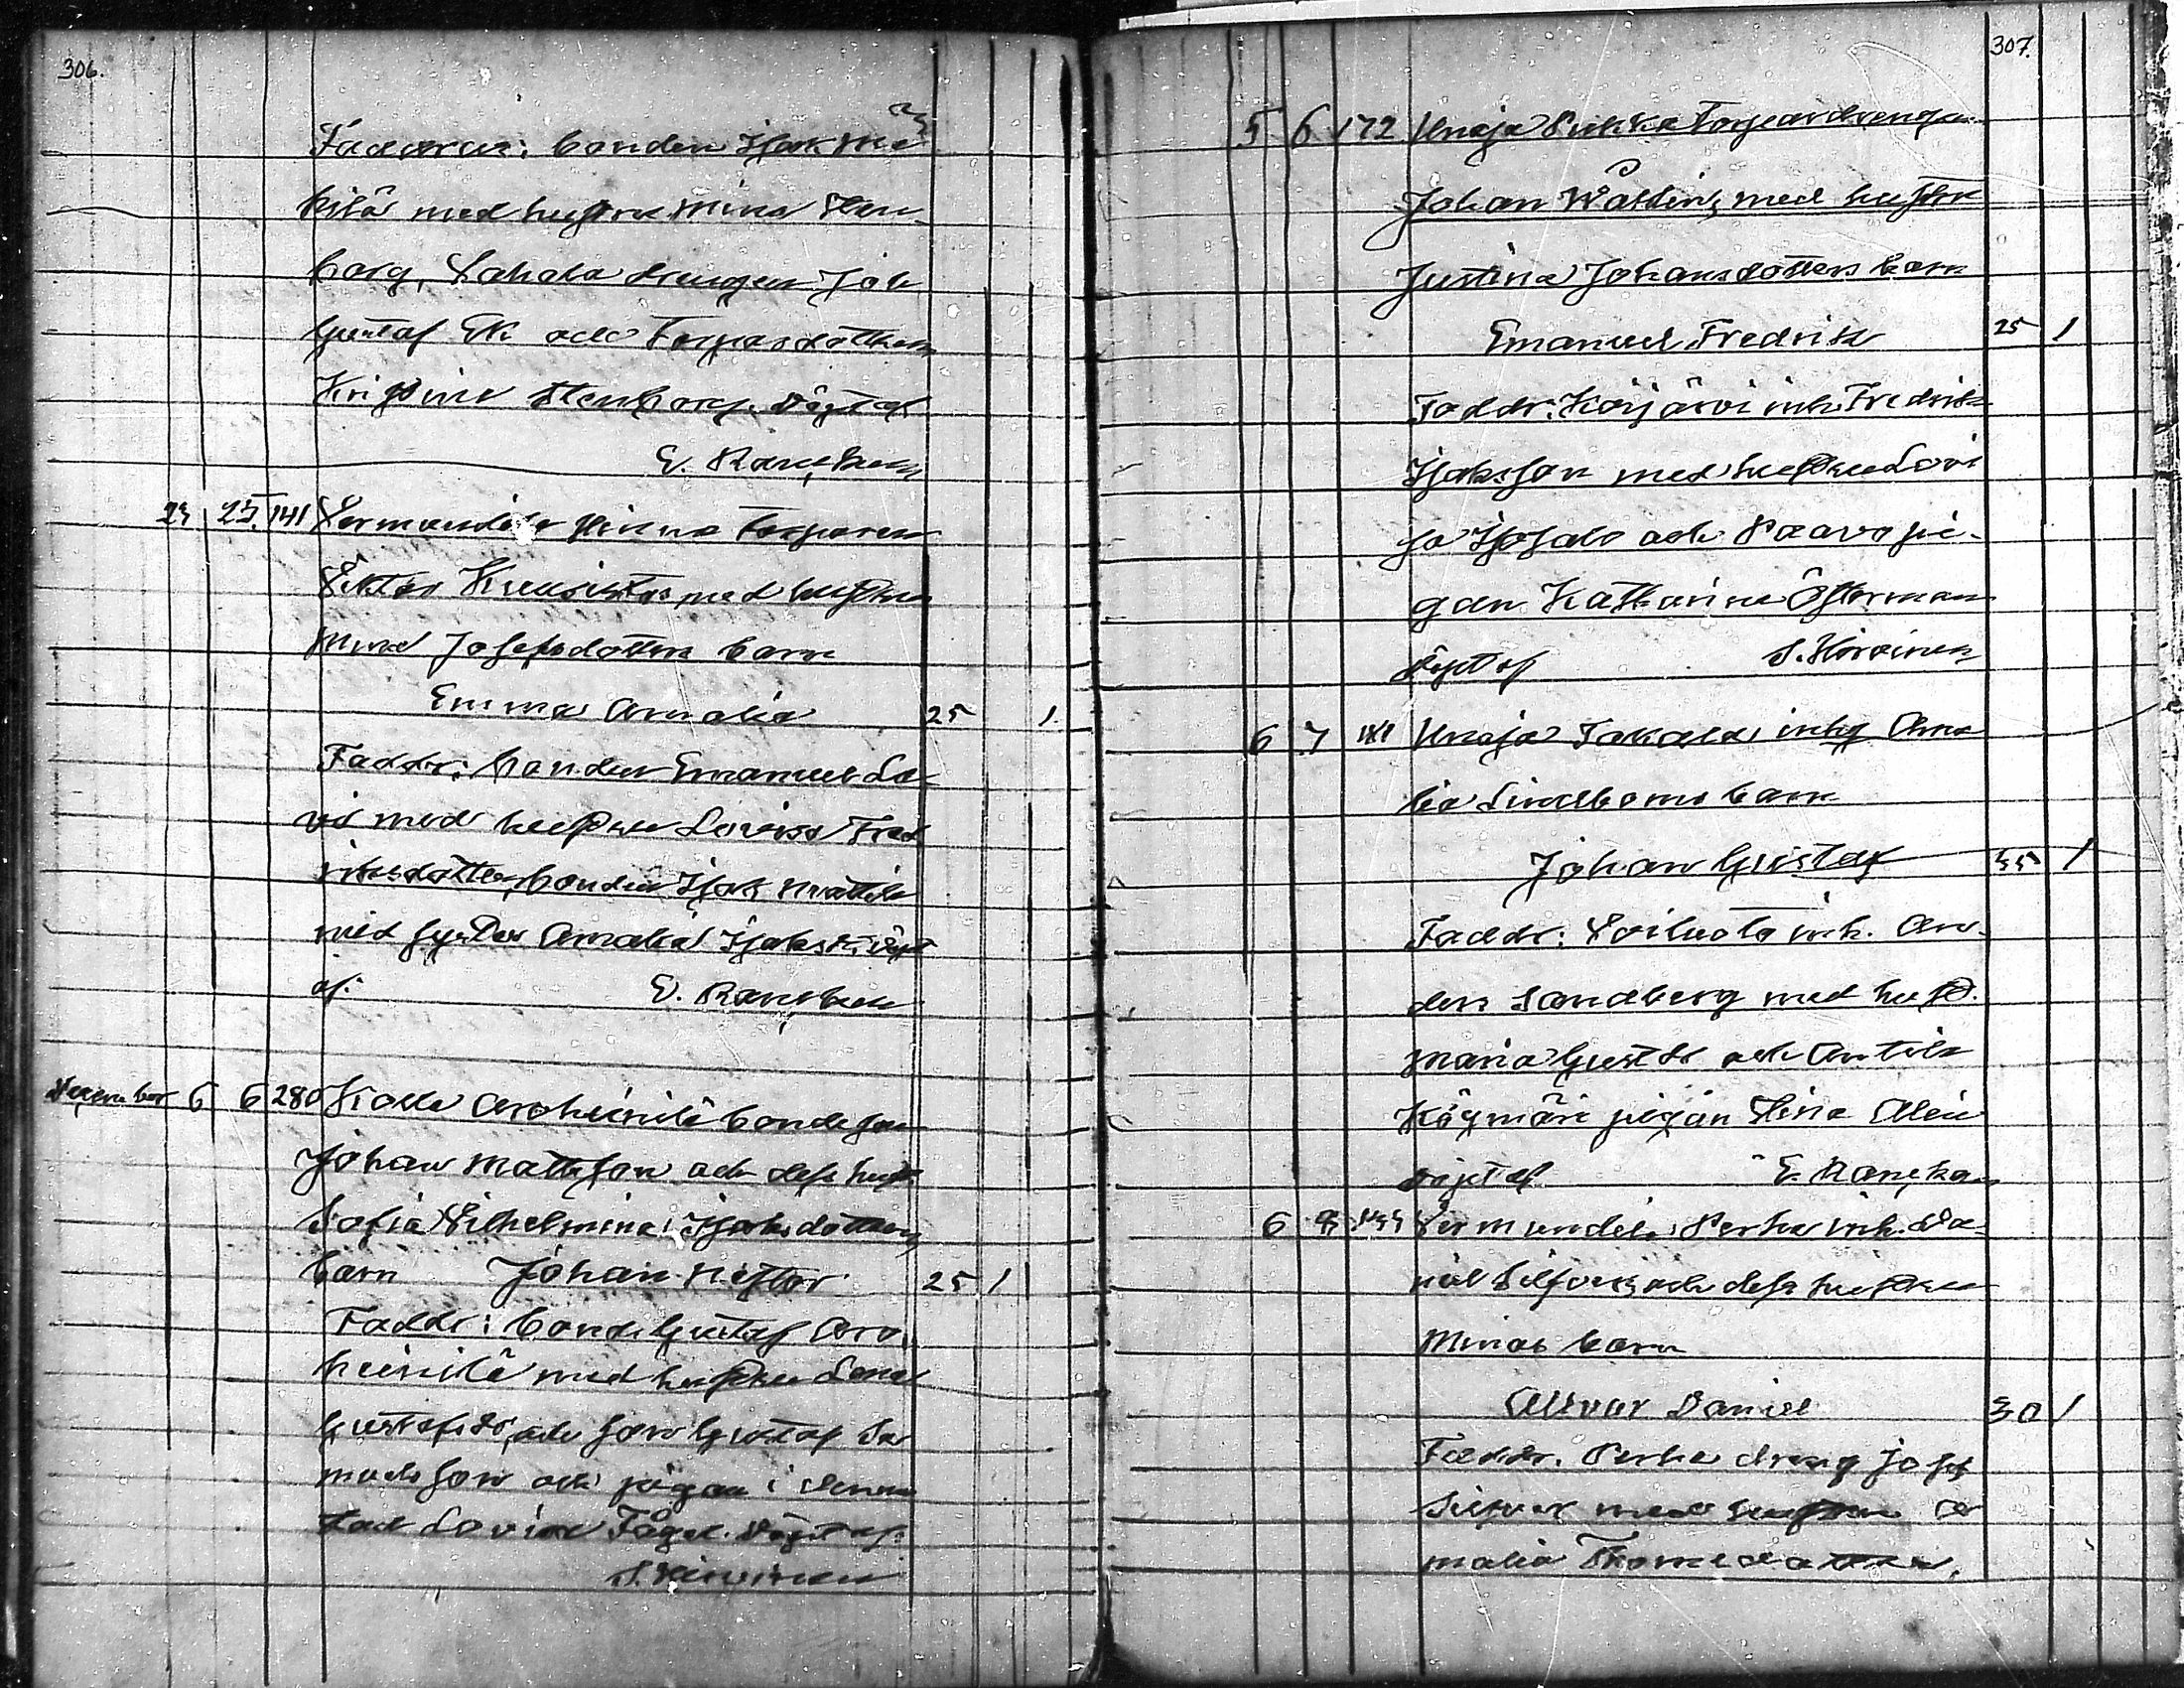 306.
Faddrar: bonden Isak Mä
kilä med hustru Mina Sten
borg, Lahola drengen Joh
Gustaf Ek och Torparedottern
Kristina Stenborg. Döpt af
E. Ranckken
23 25 141 Vermundila Torparen
Viktor med hustru
Mina Josefsdotters barn
Emma Amalia 25 1
Faddr: bonden Emanuel La
vi med hustru Lovisa Fred
riksdotter, bonden Isak Mattila
med syster Amalia Isaksd. Döpt
af. E. Ranckken
December 6 6 280 Aroheinilä bondeson
Johan Mattsson och dess hust.
Sofia Vilhelmina Isaksdotters
barn Johan Nestor 25 1
Faddr: bond. Gustaf Aro
heinilä med hustru Lena
Gustafsdr, och son Gustaf Sa
muelsson och pigan i
stad Lovisa Fågel. Döpt af:
S. Hirvinen
307.
5 6 172 Unaja Torparedrengen
Johan Wåtting med hustru
Justina Johansdotters barn
Emanuel Fredrik 25 1
Faddr: Köyjärvi inh. Fredrik
Isaksson med hustru Lovi
sa och Paavo pi-
gan Katharina Österman
döpt af S. Hirvinen
6 7 181 Unaja inhg Ama
lia Lindboms barn
Johan Gustaf 35 1
Faddr: Voiluoto inh. An-
ders Sandberg med hust.
Maria Gustdr och Anttila
pigan Stina
döpt af E. Rancken
6 Vermundila Perho inh. Da-
niel Silfver och dess hustru
Minas barn
Alvar Daniel 30 1
Faddr. Perho dreng Josef
Silfver med hustru A
malia Thomedotter.